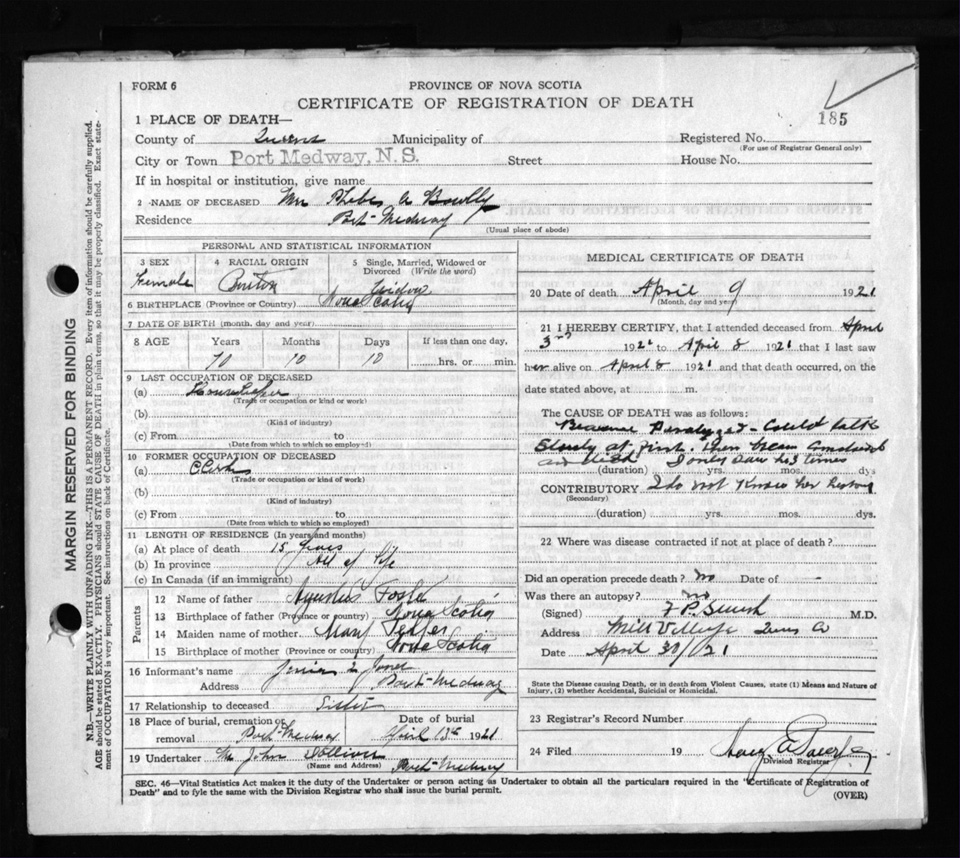 FORM 6
PROVINCE OF NOVA SCOTIA
CERTIFICATE OF REGISTRATION OF DEATH
185
1 PLACE OF DEATH—
County of Queens Municipality of Registered No.
(For use of Registrar General only)
City or Town Port Medway, N.S. Street House No.
If in hospital or institution, give name
2 NAME OF DECEASED Mrs Phebe A
Residence Port Medway
(Usual place of abode)
PERSONAL AND STATISTICAL INFORMATION
3 SEX Female
4 RACIAL ORIGIN
5 Single, Married, Widowed or Divorced (Write the word) Widow
6 BIRTHPLACE (Province or Country) Nova Scotia
7 DATE OF BIRTH (month, day and year)
8 AGE Years Months Days If less than one day,
70 10 10 hrs. or min.
9 LAST OCCUPATION OF DECEASED
(a) Housekeeper
(Trade or occupation or kind of work)
(b)
(Kind of industry)
(c) From to
(Date from which to which so employed)
10 FORMER OCCUPATION OF DECEASED
(a) Clerk
(Trade or occupation or kind of work)
(b)
(Kind of industry)
(c) From to
(Date from which to which so employed)
11 LENGTH OF RESIDENCE (In years and months)
(a) At place of death 15 years
(b) In province All of Life
(c) In Canada (if an immigrant)
Parents
12 Name of father Foster
13 Birthplace of father (Province or country) Nova Scotia
14 Maiden name of mother Mary
15 Birthplace of mother (Province or country) Nova Scotia
16 Informant's name
Address Port Medway
17 Relationship to deceased Sister
18 Place of burial, cremation or removal Port Medway Date of burial April 13th 1921
19 Undertaker Mr John
(Name and Address) Port Medway
MEDICAL CERTIFICATE OF DEATH
20 Date of death April 9 1921
(Month, day and year)
21 I HEREBY CERTIFY, that I attended deceased from April
3rd 1921 to April 8 1921 that I last saw
her alive on April 8 1921 and that death occurred, on the
date stated above, at m.
The CAUSE OF DEATH was as follows:
Became Paralyzed - Could talk
Slowly at first, then
and died I only saw her 3 times
(duration) yrs. mos. dys
CONTRIBUTORY I do not know her history
(Secondary)
(duration) yrs. mos. dys.
22 Where was disease contracted if not at place of death?
Did an operation precede death? No Date of -
Was there an autopsy? No
(Signed) M.D.
Address Mill Village Queens Co
Date April 30/21
State the Disease causing Death, or in death from Violent Causes, state (1) Means and Nature of Injury, (2) whether Accidental, Suicidal or Homicidal.
23 Registrar's Record Number
24 Filed 19
Division Registrar
SEC. 46—Vital Statistics Act makes it the duty of the Undertaker or person acting as Undertaker to obtain all the particulars required in the "Certificate of Registration of
Death" and to fyle the same with the Division Registrar who shall issue the burial permit.
(OVER)
MARGIN RESERVED FOR BINDING
N.B.—WRITE PLAINLY WITH UNFADING INK—THIS IS A PERMANENT RECORD. Every item of information should be carefully supplied.
AGE should be stated EXACTLY. PHYSICIANS should STATE CAUSE OF DEATH in plain terms, so that it may be properly classified. Exact statement
of OCCUPATION is very important. See instructions on back of Certificate.